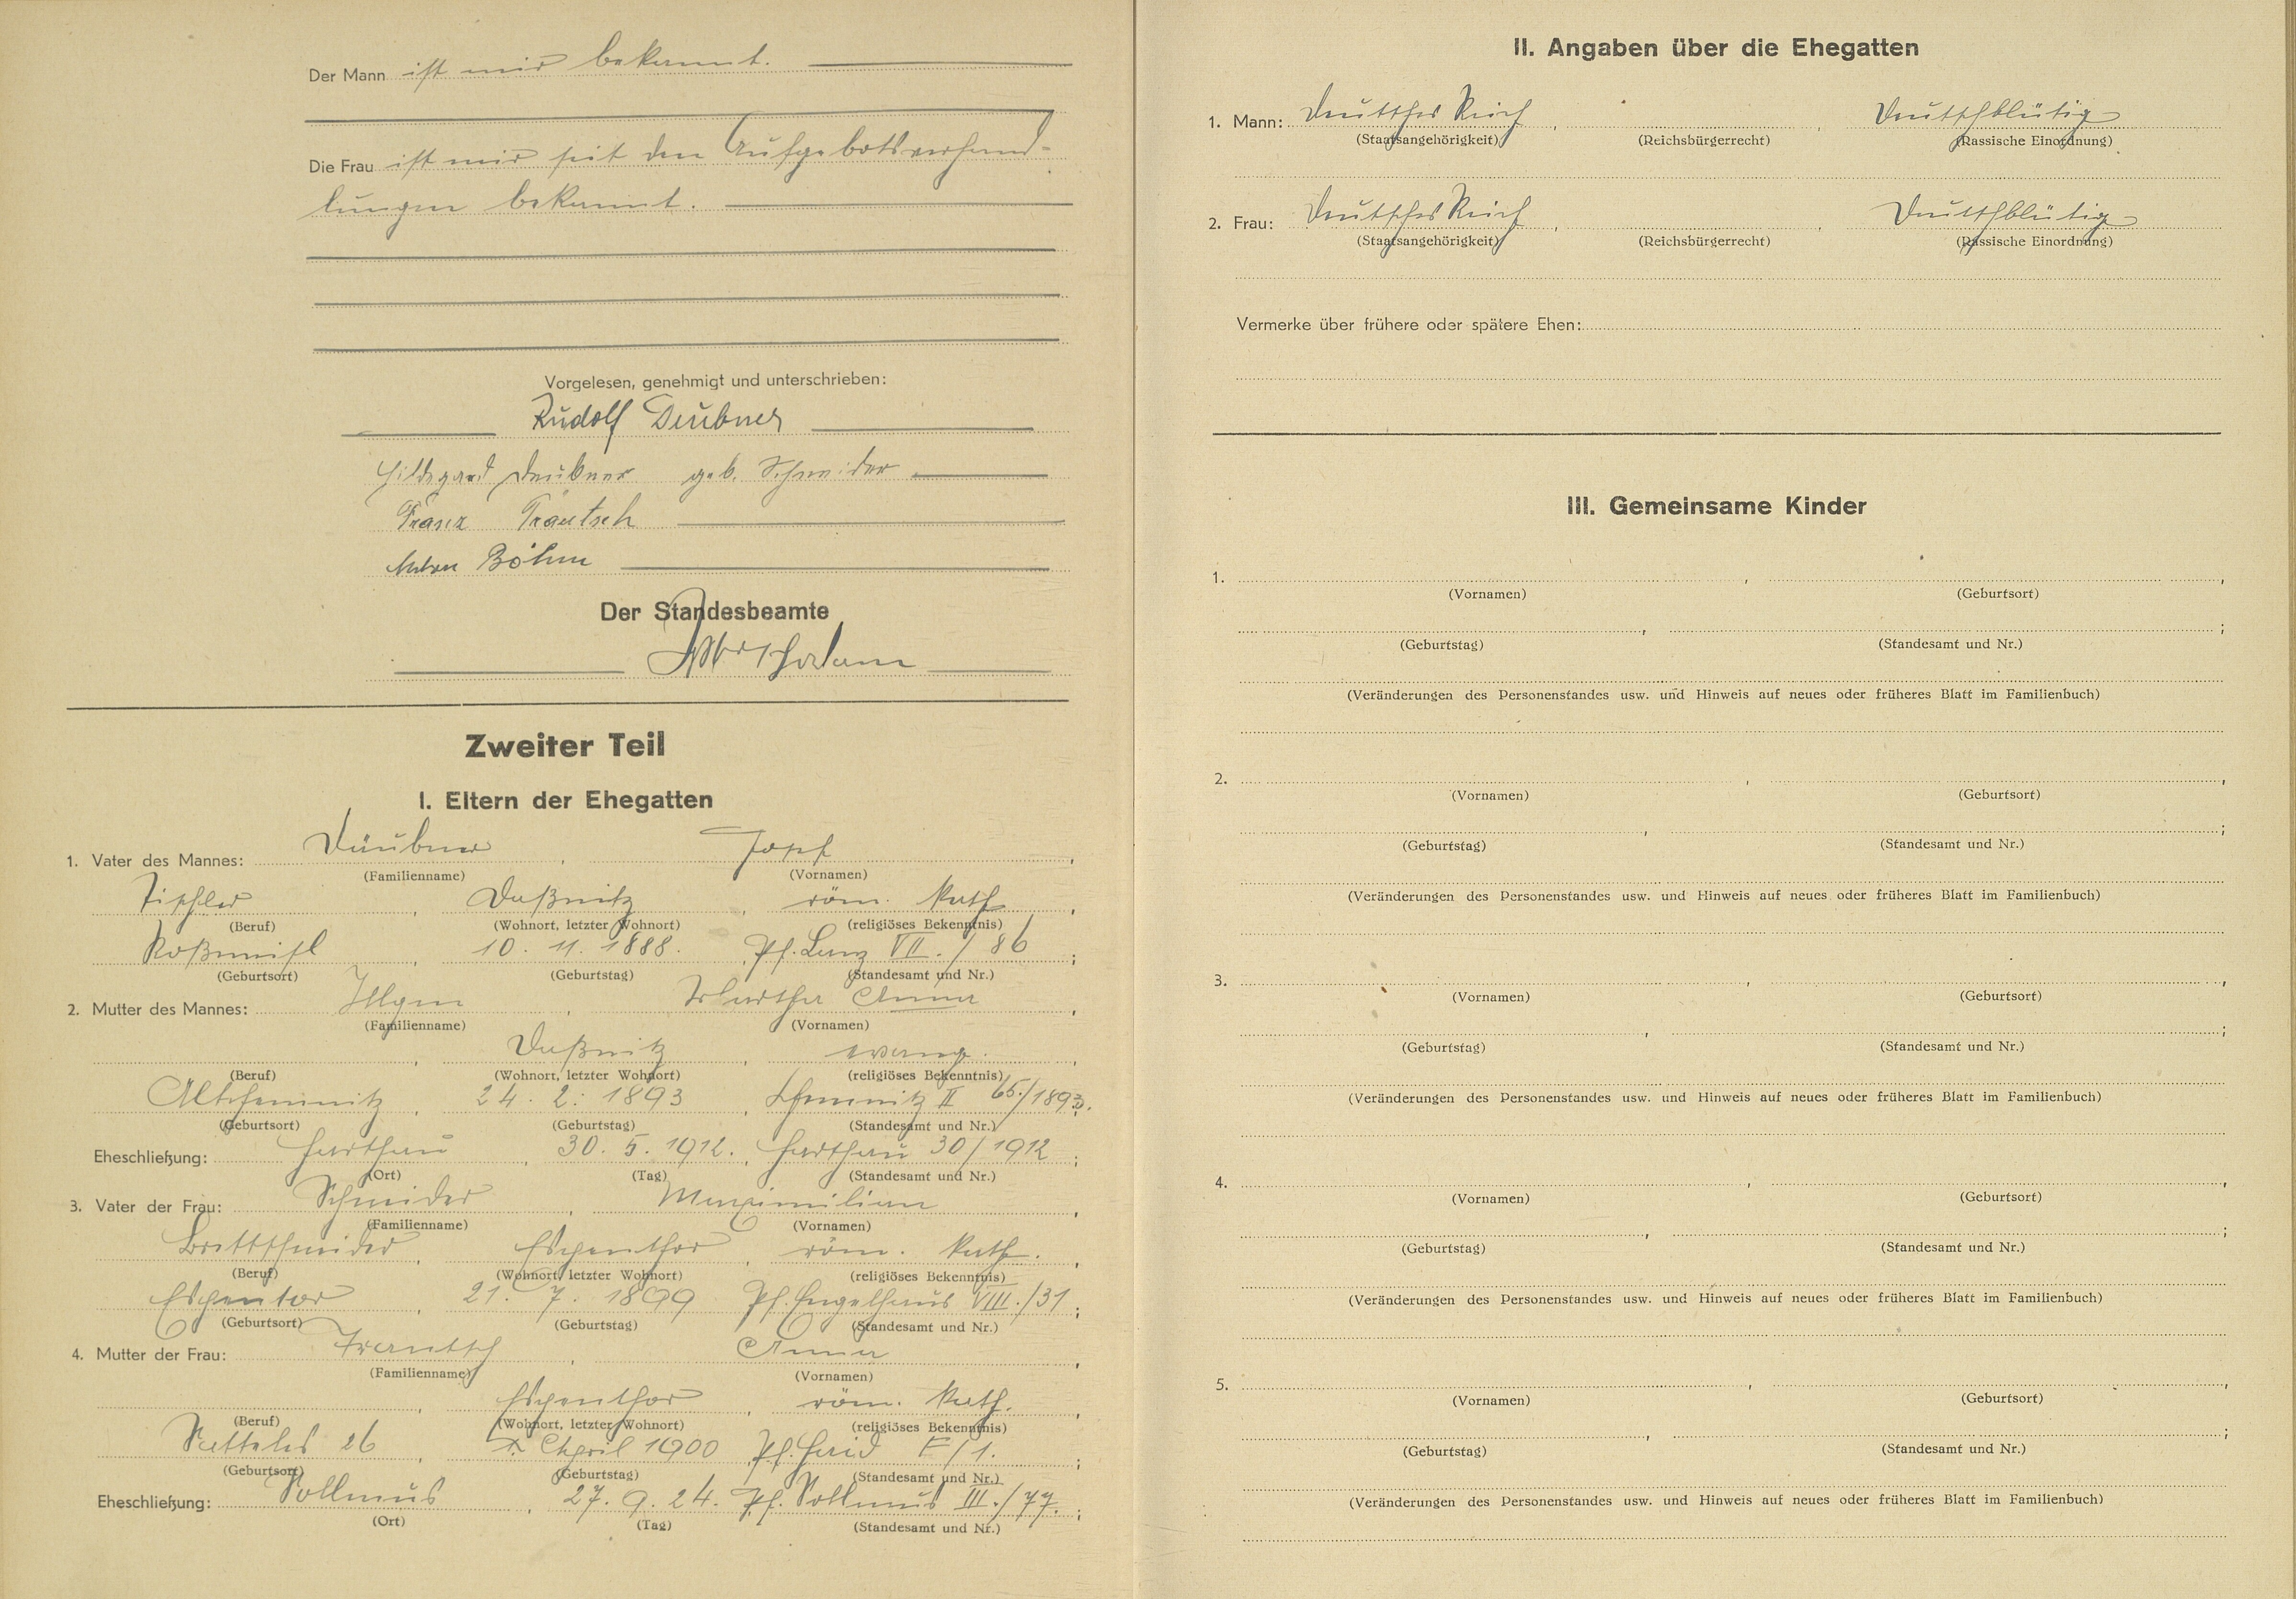 Der Mann ist mir bekannt.
Die Frau ist mir seit den Aufgebotsverhand-
lungen bekannt.
Vorgelesen, genehmigt und unterschrieben:
Rudolf Deubner
Hildegard Deubner geb. Schneider
Franz Trautsch
Böhm
Der Standesbeamte
Zweiter Teil
I. Eltern der Ehegatten
1. Vater des Mannes: Däubner, Josef,
(Familienname) (Vornamen)
Tischler, Daßnitz, röm. kath.,
(Beruf) (Wohnort, letzter Wohnort) (religiöses Bekenntnis)
Roßmeisl, 10. 11. 1888., Pf. Lanz VII./86;
(Geburtsort) (Geburtstag) (Standesamt und Nr.)
2. Mutter des Mannes: Illgen, Martha Anna,
(Familienname) (Vornamen)
, Daßnitz, evang.,
(Beruf) (Wohnort, letzter Wohnort) (religiöses Bekenntnis)
Altchemnitz, 24. 2. 1893, Chemnitz II 65./1893.;
(Geburtsort) (Geburtstag) (Standesamt und Nr.)
Eheschließung: Harthau, 30. 5. 1912., Harthau 30/1912;
(Ort) (Tag) (Standesamt und Nr.)
3. Vater der Frau: Schneider, Maximilian,
(Familienname) (Vornamen)
Brettschneider, Espenthor, röm. kath.,
(Beruf) (Wohnort, letzter Wohnort) (religiöses Bekenntnis)
Espentor, 21. 7. 1899 Pf. Engelhaus VIII./31;
(Geburtsort) (Geburtstag) (Standesamt und Nr.)
4. Mutter der Frau: Trautsch, Anna,
(Familienname) (Vornamen)
, Espenthor, röm. kath.,
(Beruf) (Wohnort, letzter Wohnort) (religiöses Bekenntnis)
Satteles 26, April 1900, Pf. /1.;
(Geburtsort) (Geburtstag) (Standesamt und Nr.)
Eheschließung: Sollmus, 27. 9. 24. Pf. Sollmus III./77.;
(Ort) (Tag) (Standesamt und Nr.)
II. Angaben über die Ehegatten
1. Mann: Deutsches Reich, , Deutschblütig
(Staatsangehörigkeit) (Reichsbürgerrecht) (Rassische Einordnung)
2. Frau: Deutsches Reich, , Deutschblütig
(Staatsangehörigkeit) (Reichsbürgerrecht) (Rassische Einordnung)
Vermerke über frühere oder spätere Ehen:
III. Gemeinsame Kinder
1. , ,
(Vornamen) (Geburtsort)
, ;
(Geburtstag) (Standesamt und Nr.)
(Veränderungen des Personenstandes usw. und Hinweis auf neues oder früheres Blatt im Familienbuch)
2. , ,
(Vornamen) (Geburtsort)
, ;
(Geburtstag) (Standesamt und Nr.)
(Veränderungen des Personenstandes usw. und Hinweis auf neues oder früheres Blatt im Familienbuch)
3. , ,
(Vornamen) (Geburtsort)
, ;
(Geburtstag) (Standesamt und Nr.)
(Veränderungen des Personenstandes usw. und Hinweis auf neues oder früheres Blatt im Familienbuch)
4. , ,
(Vornamen) (Geburtsort)
, ;
(Geburtstag) (Standesamt und Nr.)
(Veränderungen des Personenstandes usw. und Hinweis auf neues oder früheres Blatt im Familienbuch)
5. , ,
(Vornamen) (Geburtsort)
, ;
(Geburtstag) (Standesamt und Nr.)
(Veränderungen des Personenstandes usw. und Hinweis auf neues oder früheres Blatt im Familienbuch)